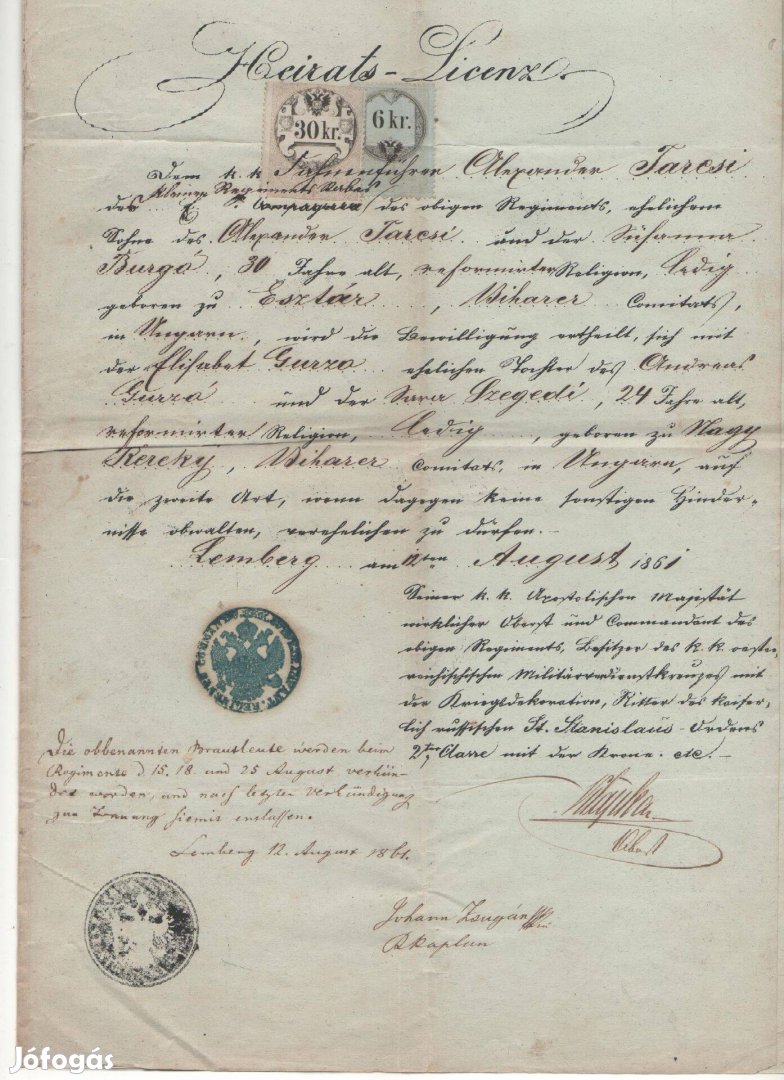 Heirats-Licenz.
30 kr.
6 kr.
Dem k. k. Alexander Tarcsi
kleinen Regiments
des obigen Regiments, ehelichem
Sohne des Alexander Tarcsi und der Susanna
Burgó, 30 Jahre alt, reformirter Religion, ledig
geboren zu Esztár, Biharer Comitats,
in Ungarn, wird die Bewilligung ertheilt, sich mit
der Elisabet Gurzo ehelichen Tochter des Andreas
Gurzó und der Sara Szegedi, 24 Jahre alt,
reformirter Religion, ledig, geboren zu Nagy
Kereky, Biharer Comitats, in Ungarn, auf
die zweite Art, wenn dagegen keine sonstigen Hinder-
nisse obwalten, verehelichen zu dürfen.
Lemberg am 12ten August 1861
Seiner k. k. Apostolischen Majestät
wirklicher Oberst und Commandant des
obigen Regiments, Besitzer des k. k. oester-
reichischischen Militärverdienstkreuzes mit
der Kriegsdekoration, Ritter des kaiser-
lich russischen St. Stanislaus-Ordens
2ter Classe mit der Krone. etc.
Die obbenannten Brautleute werden beim
Regimente d 15, 18. und 25 August verkün-
det worden, und nach letzter Verkündigung
zur Trauung hiemit entlassen.
Lemberg 12. August 1861.
Oberst
Johann
Rkaplan
Jófogás